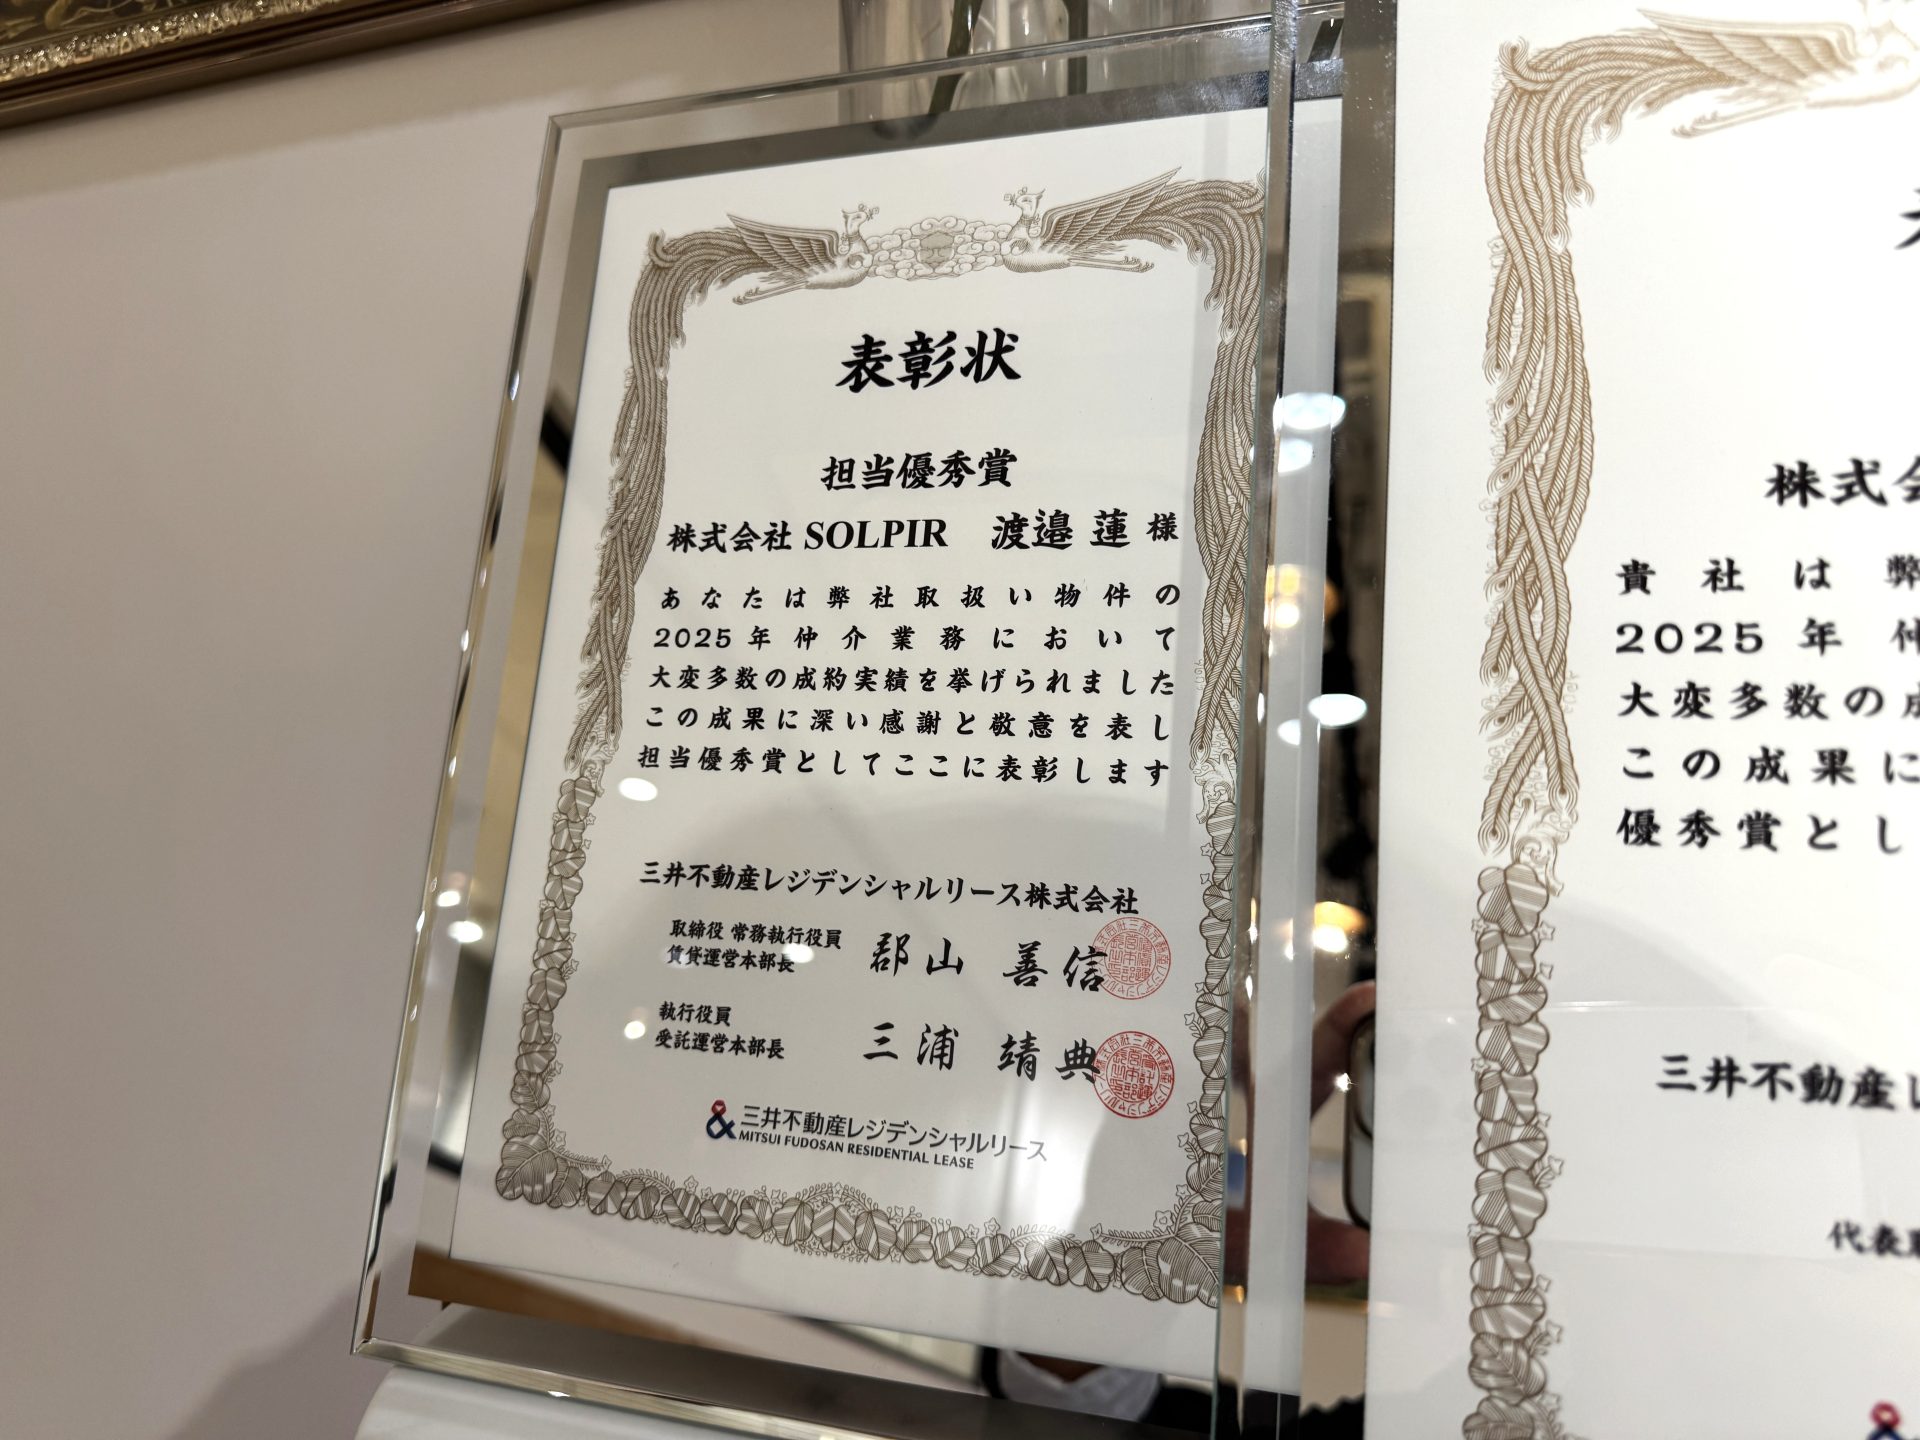 表彰状
担当優秀賞
株式会社 SOLPIR 渡邉 蓮 様
あなたは弊社取扱い物件の
2025年仲介業務において
大変多数の成約実績を挙げられました
この成果に深い感謝と敬意を表し
担当優秀賞としてここに表彰します
三井不動産レジデンシャルリース株式会社
取締役 常務執行役員
賃貸運営本部長
郡山 善信
執行役員
受託運営本部長
三浦 靖典
三井不動産レジデンシャルリース
MITSUI FUDOSAN RESIDENTIAL LEASE
株式会
貴社は弊
2025年仲
大変多数の成
この成果に
優秀賞とし
三井不動産レ
代表取